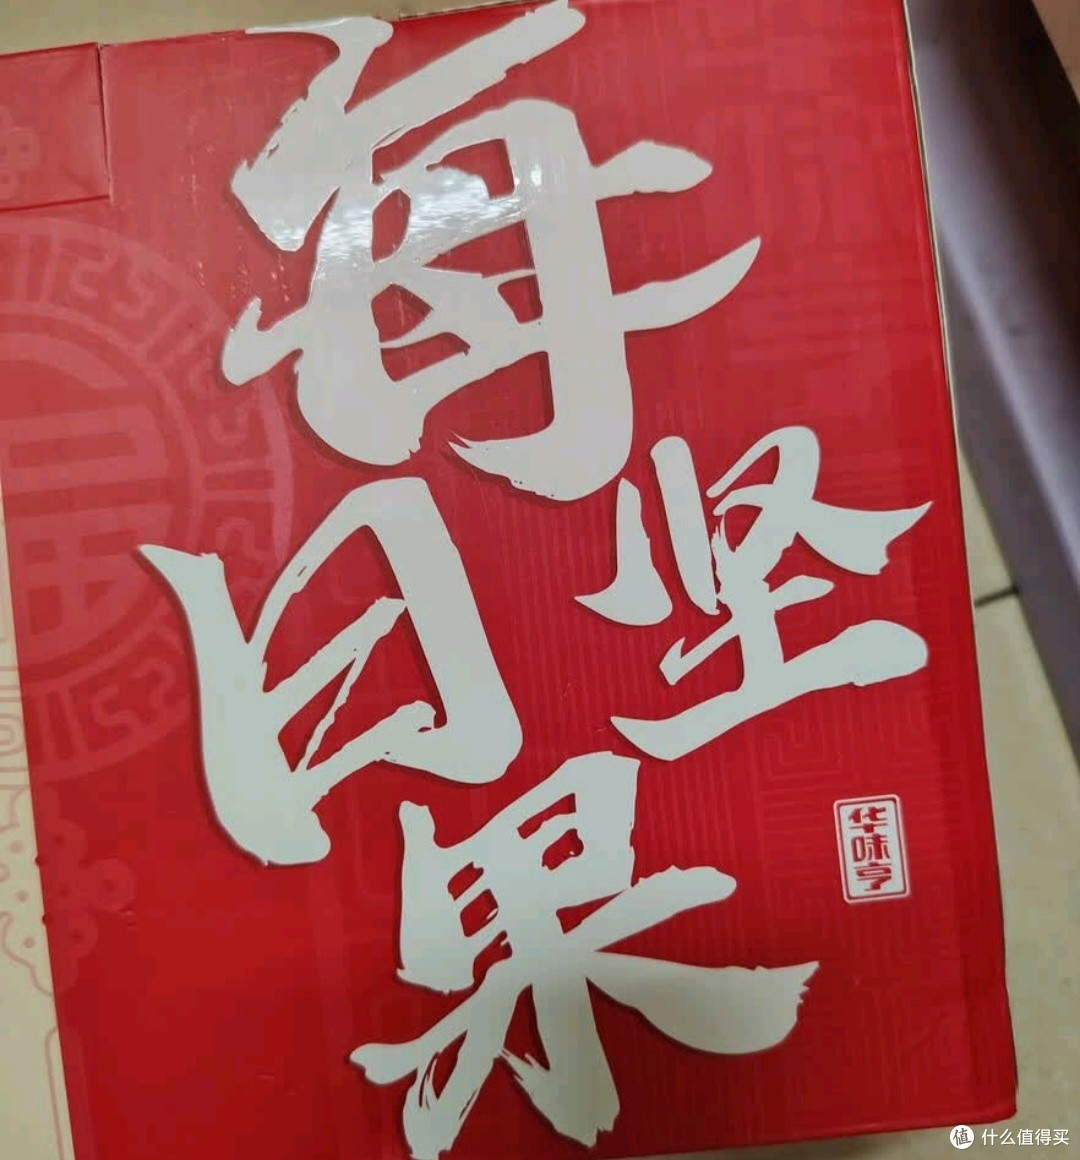 每
日
坚
果
华味亨
值 什么值得买